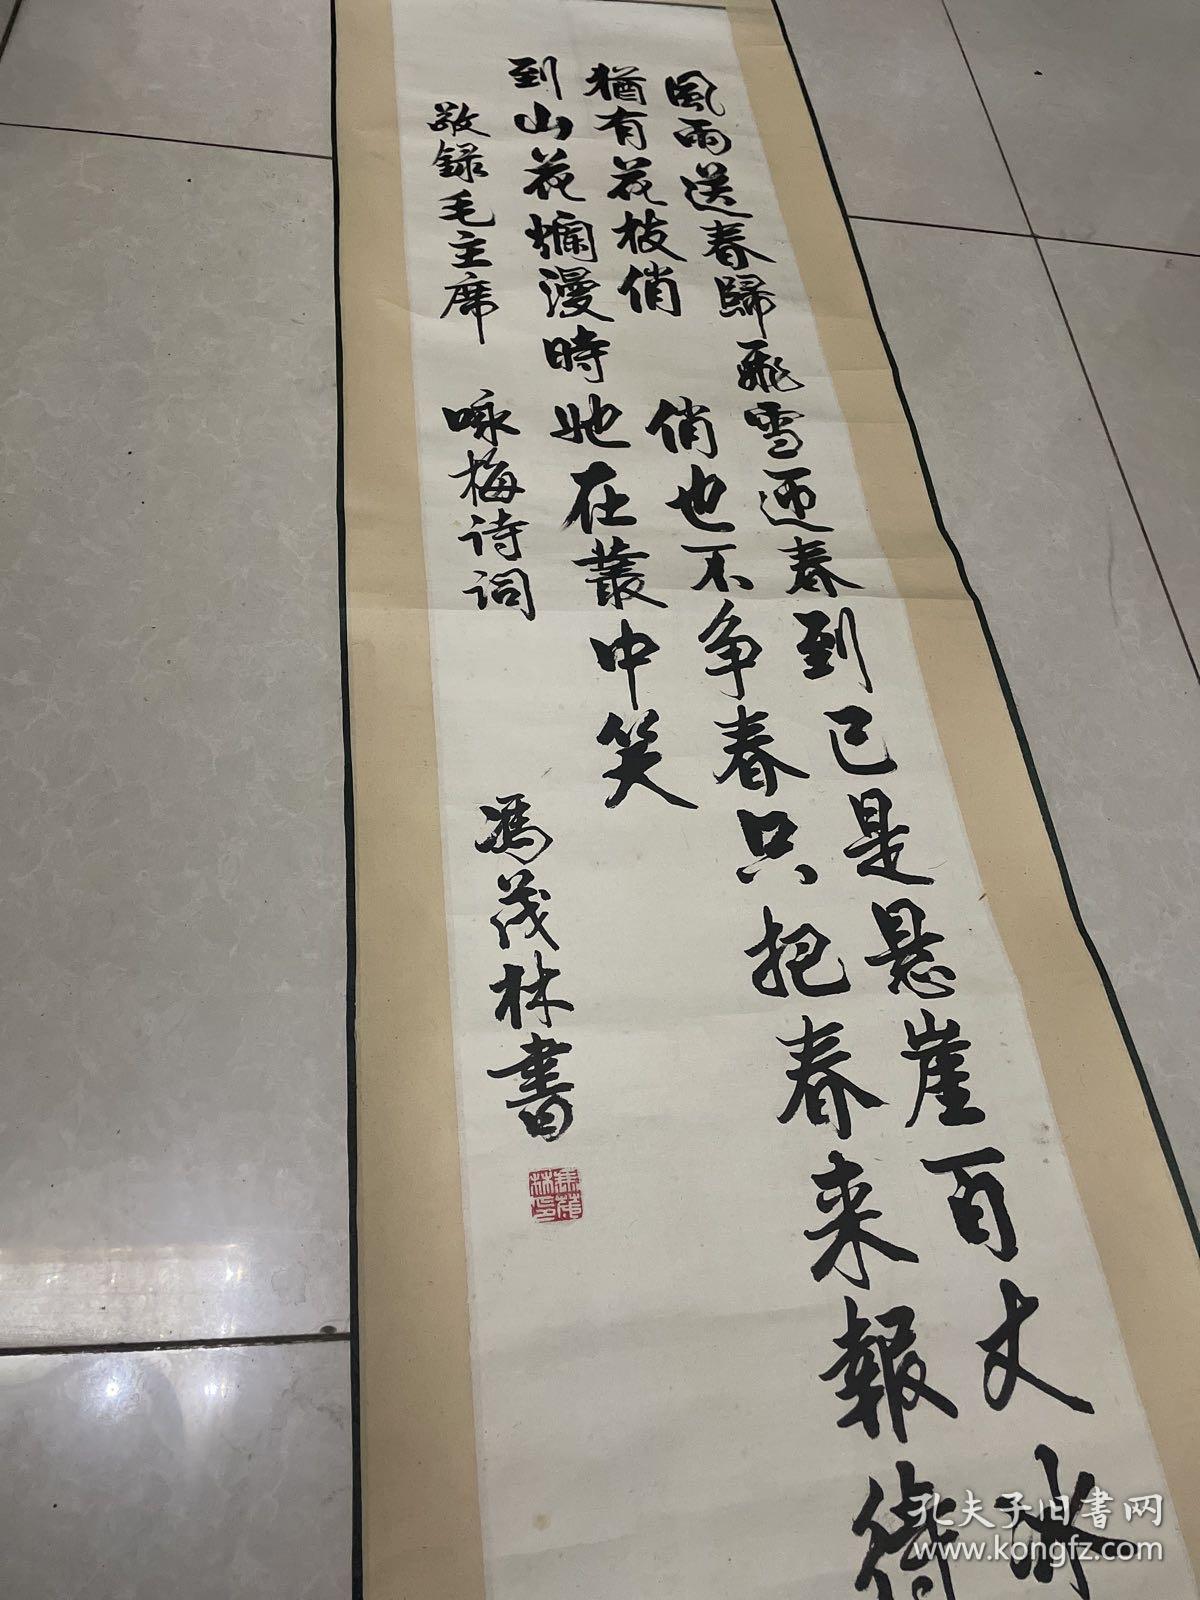 風雨送春歸飛雪迎春到已是悬崖百丈冰
猶有花枝俏 俏也不争春只把春来報待
到山花爛漫時她在叢中笑
敬録毛主席 咏梅诗词 馮茂林書
孔夫子旧書网
www.kongfz.com